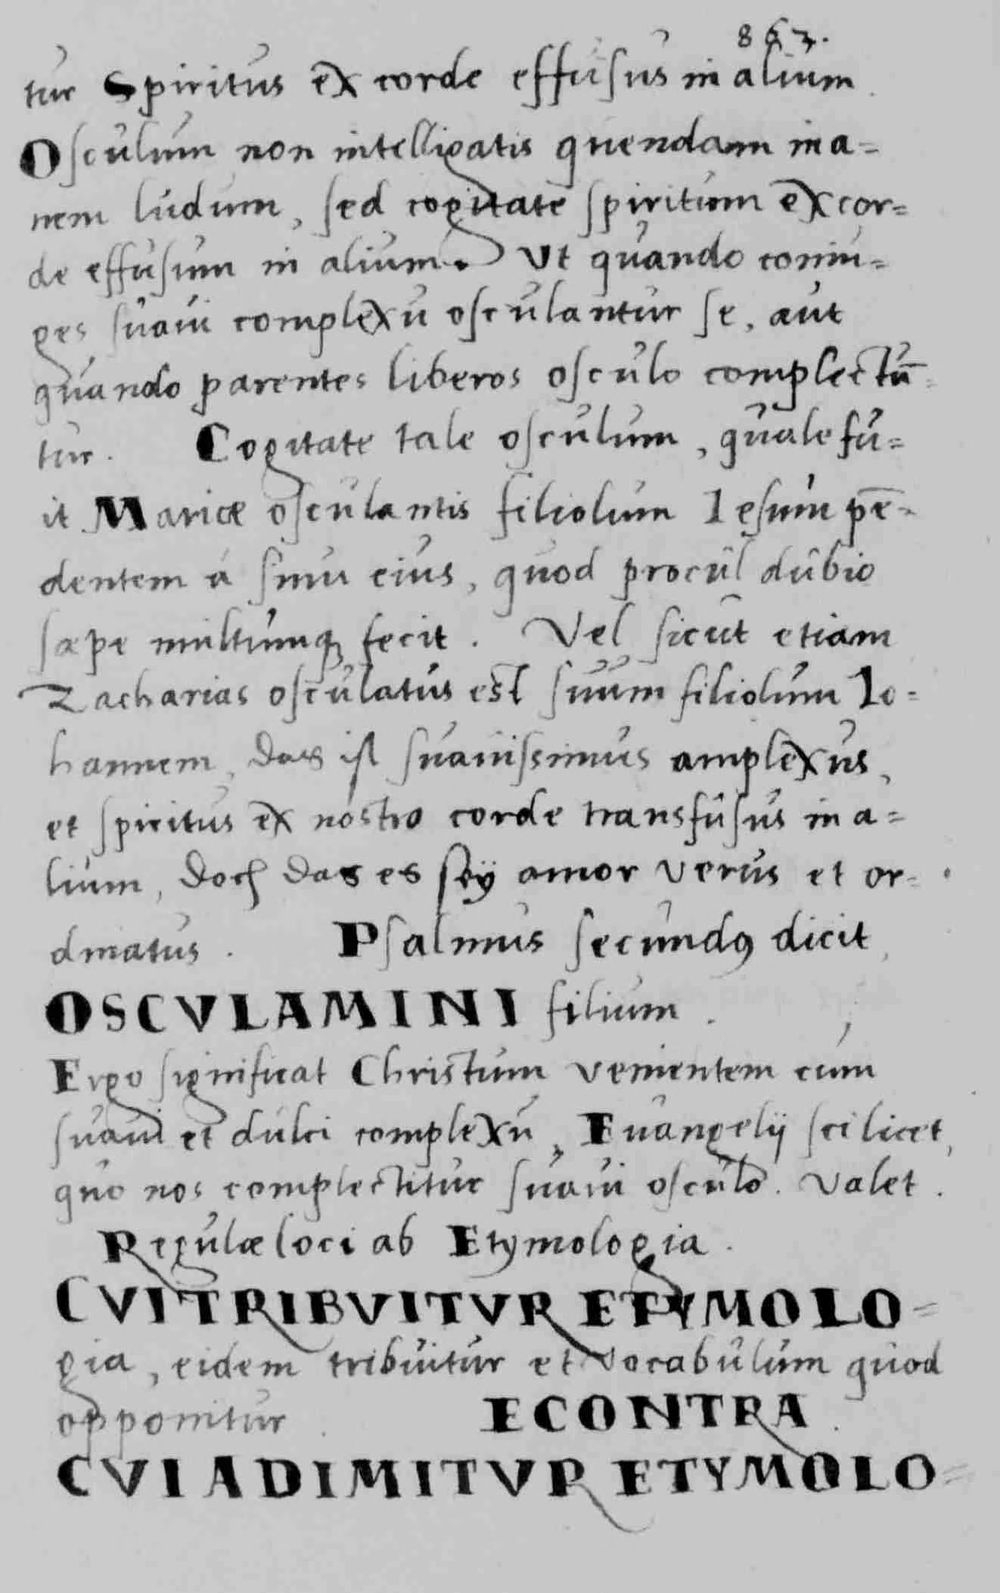 863.
tur Spiritus ex corde effusus in alium.
Osculum non intelligatis quendam ina=
nem ludum, sed cogitate spiritum ex cor=
de effusum in alium. Vt quando coniu=
ges suaui complexu osculantur se, aut
quando parentes liberos osculo complectū=
tur. Cogitate tale osculum, quale fu=
it Mariæ osculantis filiolum Iesum pē=
dentem á sinu eius, quod procul dubio
sæpe multumq; fecit. Vel sicut etiam
Zacharias osculatus est suum filiolum Io=
hannem, das ist suauissimus amplexus,
et spiritus ex nostro corde transfusus in a=
lium, doch das es sey amor verus et or=
dinatus. Psalmus secundꝰ dicit,
OSCVLAMINI filium.
Ergo significat Christum venientem cum
suaui et dulci complexu, Euangelij scilicet,
quo nos complectitur suaui osculo. Valet.
Regulæ loci ab Etymologia.
CVI TRIBVITVR ETYMOLO=
gia, eidem tribuitur et vocabulum quod
opponitur. ECONTRA.
CVI ADIMITVR ETYMOLO=